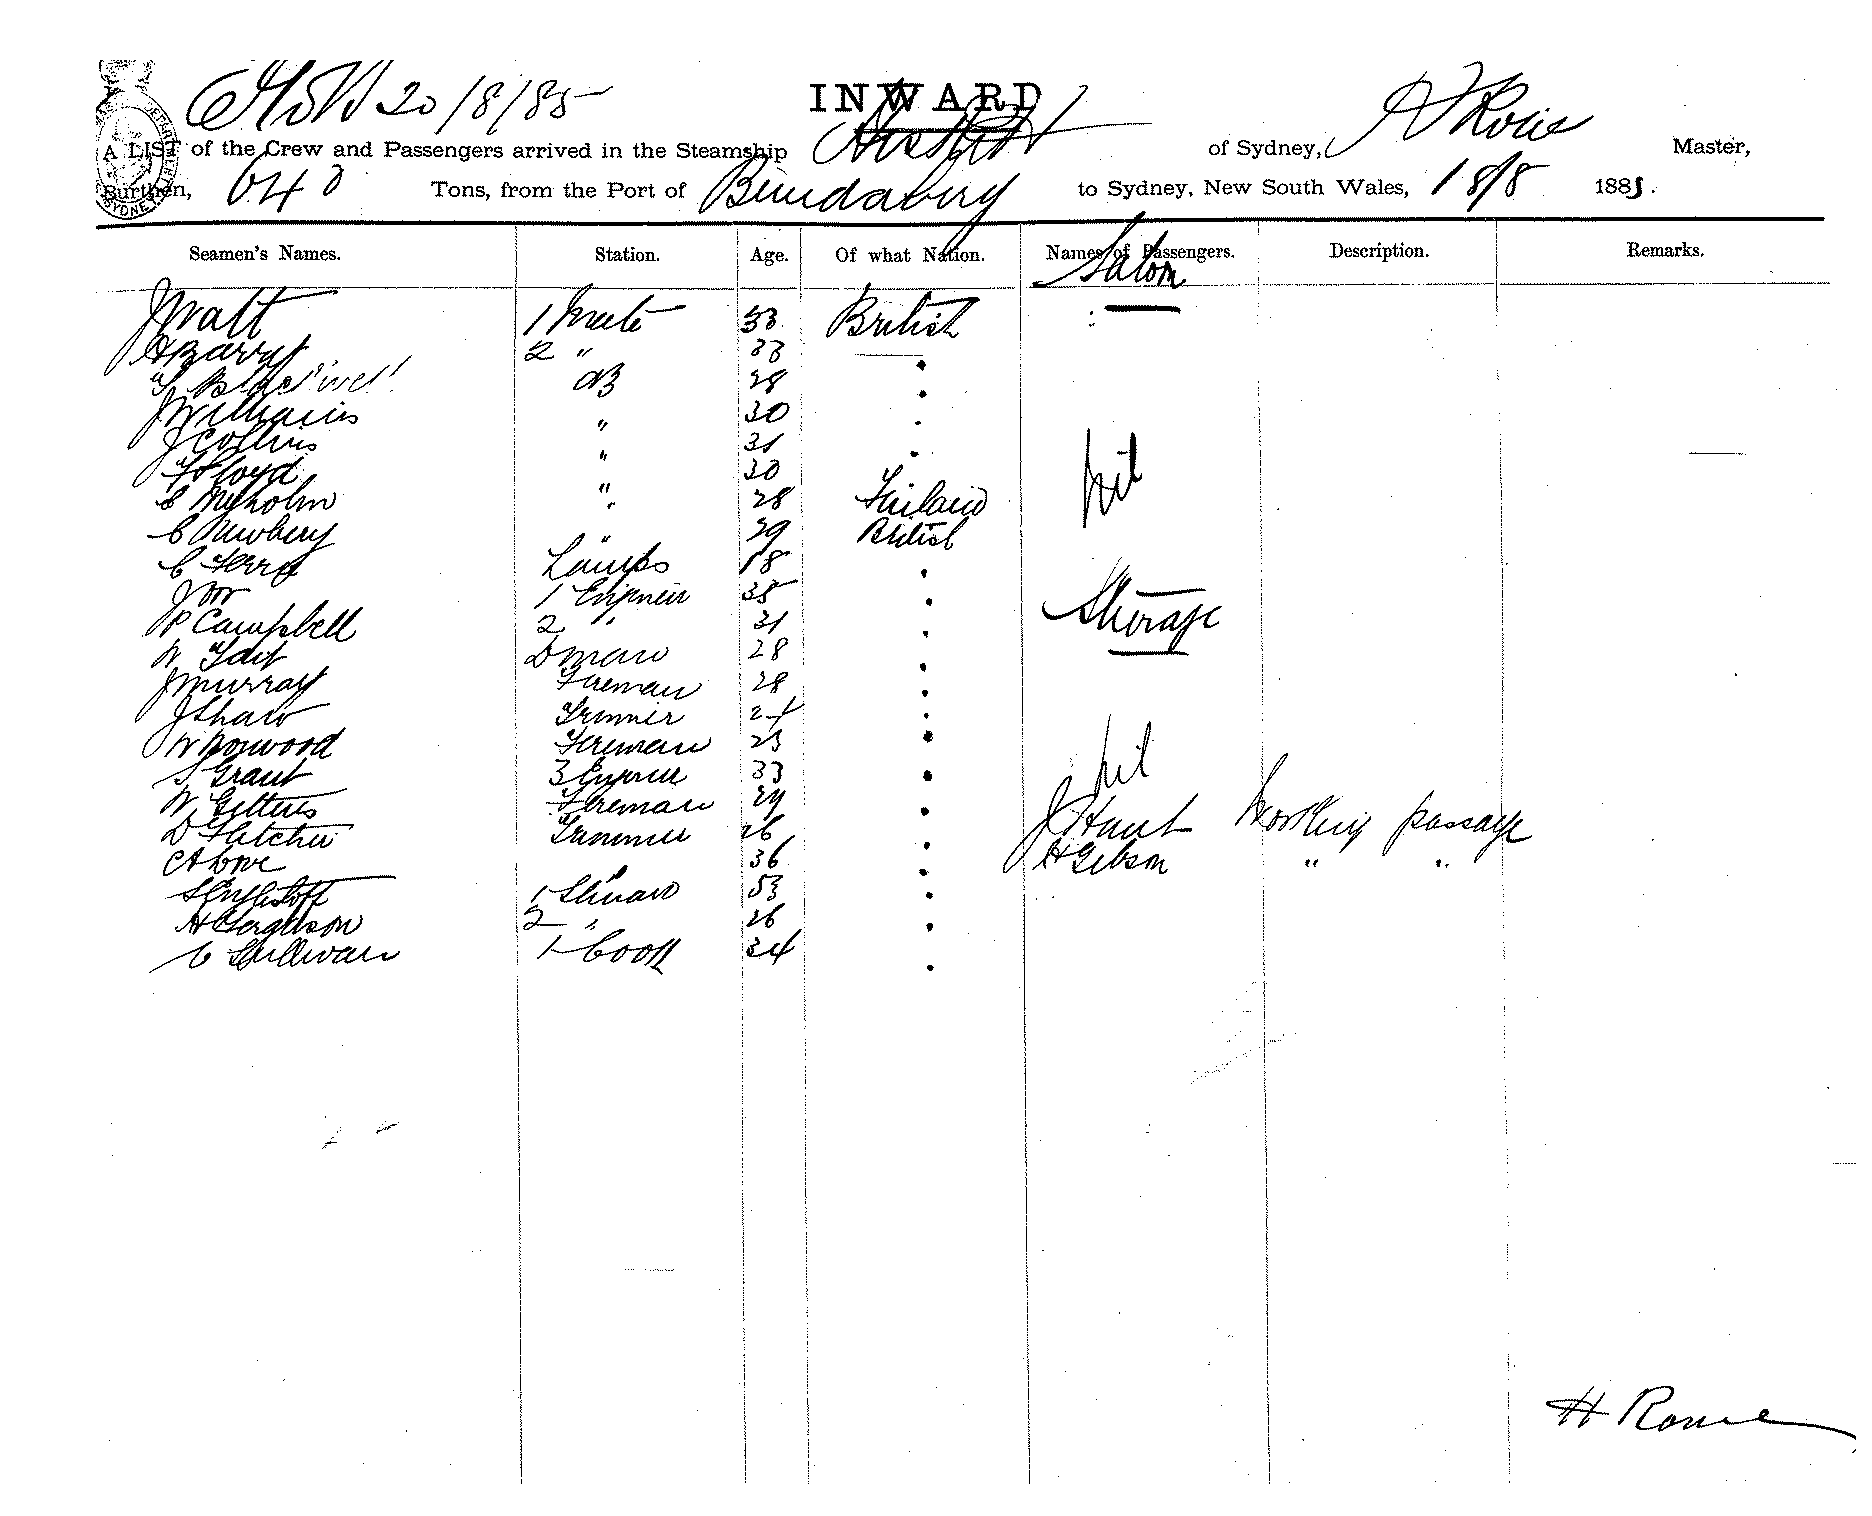 20/8/85
INWARD
A LIST of the Crew and Passengers arrived in the Steamship of Sydney, H Rowe Master,
Burthen, 643 Tons, from the Port of Bundaberg to Sydney, New South Wales, 18/8 1885.
Seamen's Names. Station. Age. Of what Nation. Names of Passengers. Description. Remarks.
Saloon
J Watt 1 Mate 33 British
H Barry 2 " 33
AB 28
J Williams " 30
J Collins " 31
Lloyd " 30 nil
C Nyholm " 28 Finland
C Newbery " 29 British
C Terry Lamps 18
J Orr 1 Engineer 35
P Campbell 2 " 31 Steerage
W Tait D man 28
J Murray Fireman 28
J Shaw Trimmer 24
W Norwood Fireman 23
S Grant 3 Engineer 33 nil
W Gitters Fireman 29 J Hunt Working passage
D Fletcher Trimmer 26
" 36 H Gibson " "
1 Steward 53
H Ferguson 2 " 26
C Sullivan 1 Cook 34
H Rowe